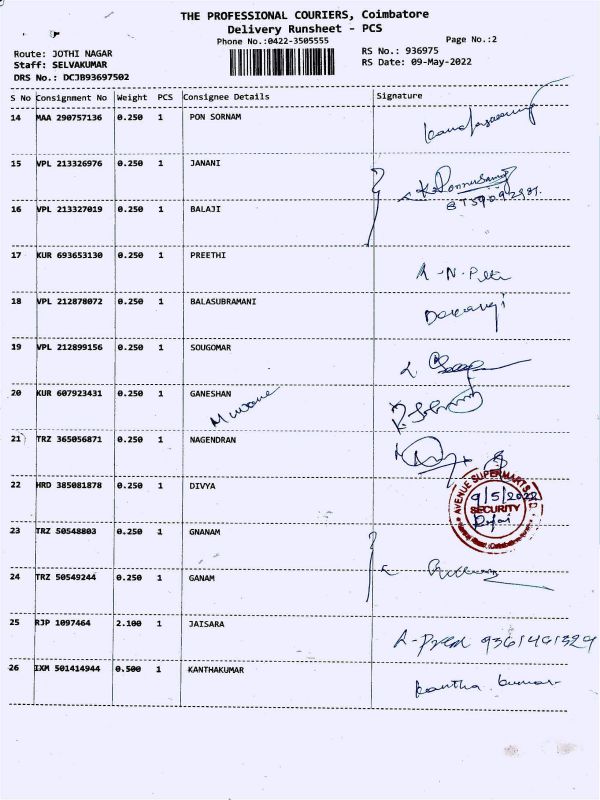 THE PROFESSIONAL COURIERS, Coimbatore
Delivery Runsheet - PCS
Phone No.:0422-3505555
Page No.:2
Route: JOTHI NAGAR
RS No.: 936975
Staff: SELVAKUMAR
RS Date: 09-May-2022
DRS No.: DCJB93697502
S No Consignment No Weight PCS Consignee Details Signature
14 MAA 290757136 0.250 1 PON SORNAM
15 VPL 213326976 0.250 1 JANANI
16 VPL 213327019 0.250 1 BALAJI
17 KUR 693653130 0.250 1 PREETHI
18 VPL 212878072 0.250 1 BALASUBRAMANI
19 VPL 212899156 0.250 1 SOUGOMAR
20 KUR 607923431 0.250 1 GANESHAN
21 TRZ 365056871 0.250 1 NAGENDRAN
22 HRD 385081878 0.250 1 DIVYA
AVENUE SUPERMARTS LTD
9/5/2022
SECURITY
23 TRZ 50548803 0.250 1 GNANAM
24 TRZ 50549244 0.250 1 GANAM
25 RJP 1097464 2.100 1 JAISARA
26 IXM 501414944 0.500 1 KANTHAKUMAR
kantha kumar